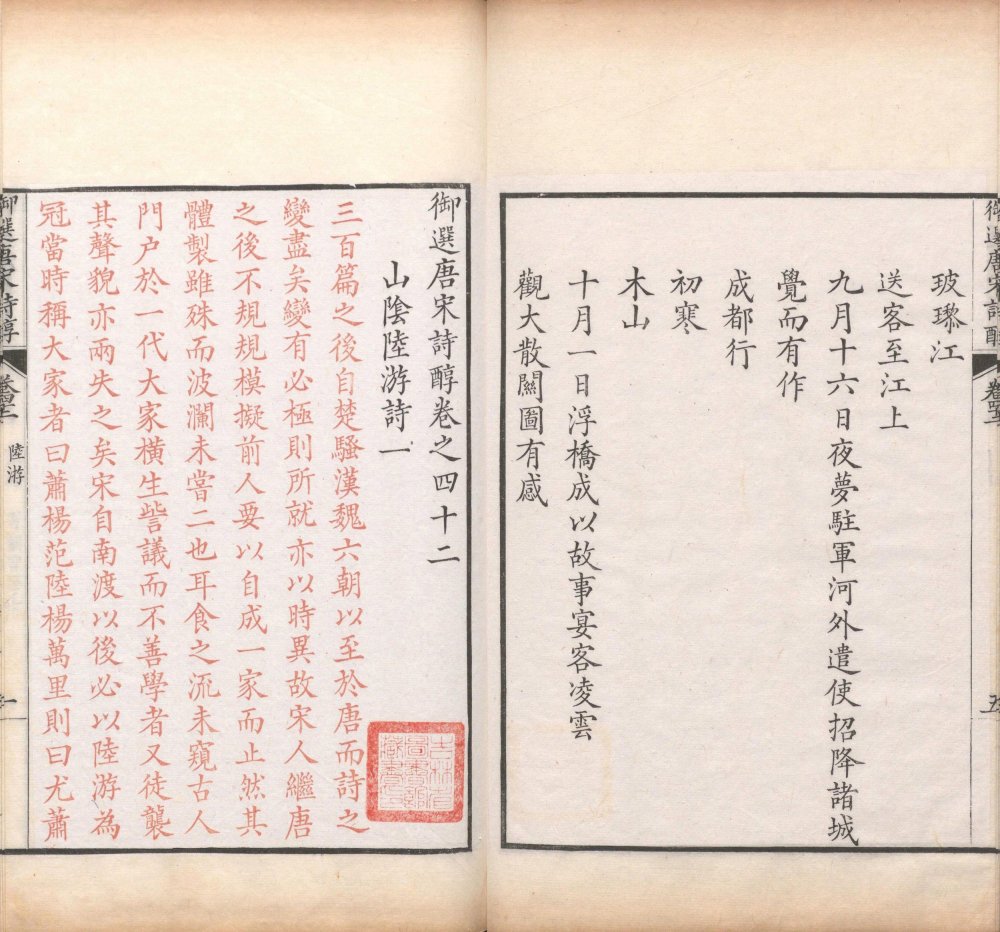 御選唐宋詩醇
卷四十二
五
玻瓈江
送客至江上
九月十六日夜夢駐軍河外遣使招降諸城
覺而有作
成都行
初寒
木山
十月一日浮橋成以故事宴客凌雲
觀大散關圖有感
御選唐宋詩醇卷之四十二
山陰陸游詩一
三百篇之後自楚騷漢魏六朝以至於唐而詩之
變盡矣變有必極則所就亦以時異故宋人繼唐
之後不規規模擬前人要以自成一家而止然其
體製雖殊而波瀾未嘗二也耳食之流未窺古人
門户於一代大家橫生訾議而不善學者又徒襲
其聲貌亦兩失之矣宋自南渡以後必以陸游為
冠當時稱大家者曰蕭楊范陸楊萬里則曰尤蕭
御選唐宋詩醇
卷四十二
陸游
一